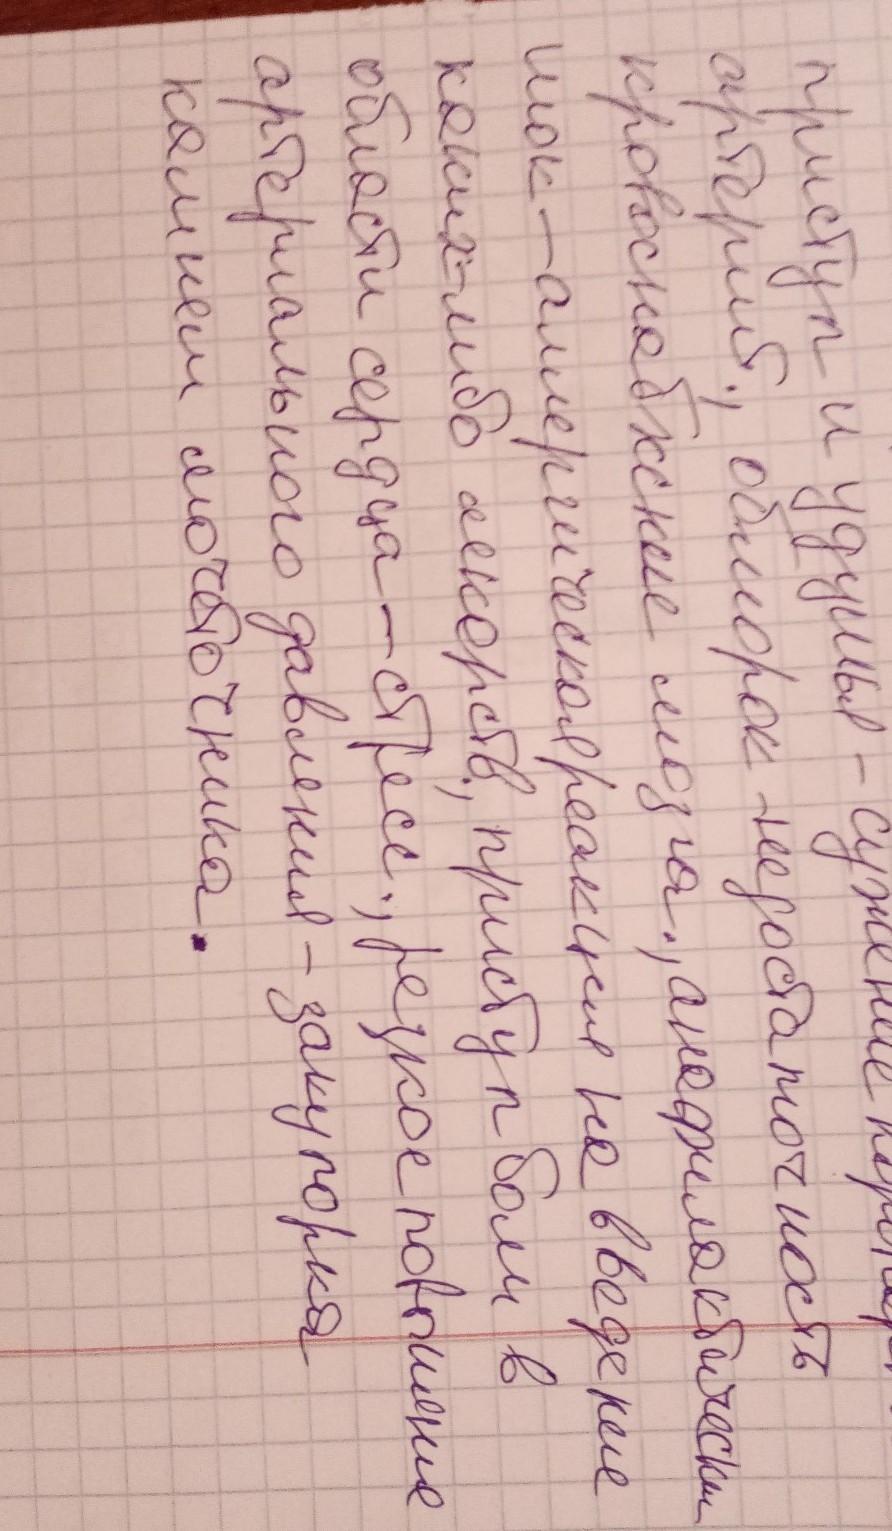 приступ и удушья - сужение
артерий; обморок - недостаточность
кровоснабжение мозга; анафилактически
шок - аллергической реакция на введение
каких-либо лекарств; приступ боли в
области сердца - стресс; резкое повышение
артериального давления - закупорка
камнем мочеточника.